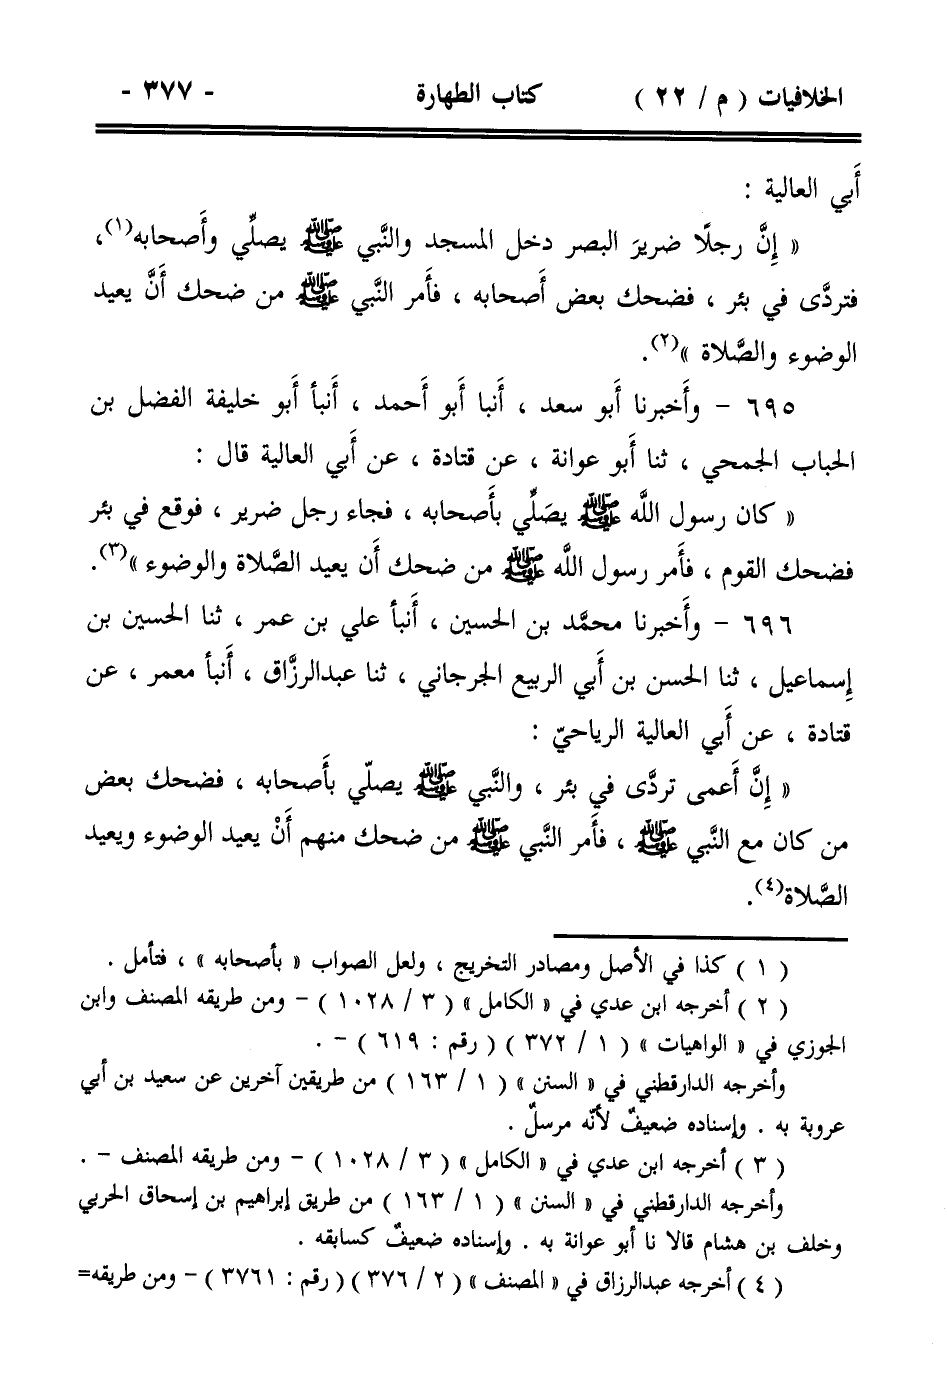 الخلافيات ( م / ٢٢ ) كتاب الطهارة - ٣٧٧ -
أَبي العالية :
« إِنَّ رجلًا ضريرَ البصر دخل المسجد والنَّبي ﷺ يصلِّي وأَصحابه(١)،
فتردَّى في بئر ، فضحك بعض أَصحابه ، فأَمر النَّبي ﷺ من ضحك أَنَّ يعيد
الوضوء والصَّلاة »(٢).
٦٩٥ - وأَخبرنا أَبو سعد ، أَنبا أَبو أَحمد ، أَنبأ أَبو خليفة الفضل بن
الحباب الجمحي ، ثنا أَبو عوانة ، عن قتادة ، عن أَبي العالية قال :
« كان رسول اللَّه ﷺ يصَلِّي بأَصحابه ، فجاء رجل ضرير ، فوقع في بئر
فضحك القوم ، فأَمر رسول اللَّه ﷺ من ضحك أَن يعيد الصَّلاة والوضوء »(٣).
٦٩٦ - وأَخبرنا محمَّد بن الحسين ، أَنبأ علي بن عمر ، ثنا الحسين بن
إِسماعيل ، ثنا الحسن بن أَبي الربيع الجرجاني ، ثنا عبدالرزَّاق ، أَنبأ معمر ، عن
قتادة ، عن أَبي العالية الرياحيّ :
« إِنَّ أَعمى تردَّى في بئر ، والنَّبي ﷺ يصلّي بأَصحابه ، فضحك بعض
من كان مع النَّبي ﷺ ، فأَمر النَّبي ﷺ من ضحك منهم أَنْ يعيد الوضوء ويعيد
الصَّلاة(٤).
( ١ ) كذا في الأصل ومصادر التخريج ، ولعل الصواب « بأصحابه » ، فتأمل .
( ٢ ) أخرجه ابن عدي في « الكامل » ( ٣ / ١٠٢٨ ) - ومن طريقه المصنف وابن
الجوزي في « الواهيات » ( ١ / ٣٧٢ ) ( رقم : ٦١٩ ) - .
وأخرجه الدارقطني في « السنن » ( ١ / ١٦٣ ) من طريقين آخرين عن سعيد بن أبي
عروبة به . وإسناده ضعيفٌ لأنّه مرسلٌ .
( ٣ ) أخرجه ابن عدي في « الكامل » ( ٣ / ١٠٢٨ ) - ومن طريقه المصنف - .
وأخرجه الدارقطني في « السنن » ( ١ / ١٦٣ ) من طريق إبراهيم بن إسحاق الحربي
وخلف بن هشام قالا نا أبو عوانة به . وإسناده ضعيفٌ كسابقه .
( ٤ ) أخرجه عبدالرزاق في « المصنف » ( ٢ / ٣٧٦ ) ( رقم : ٣٧٦١ ) - ومن طريقه=